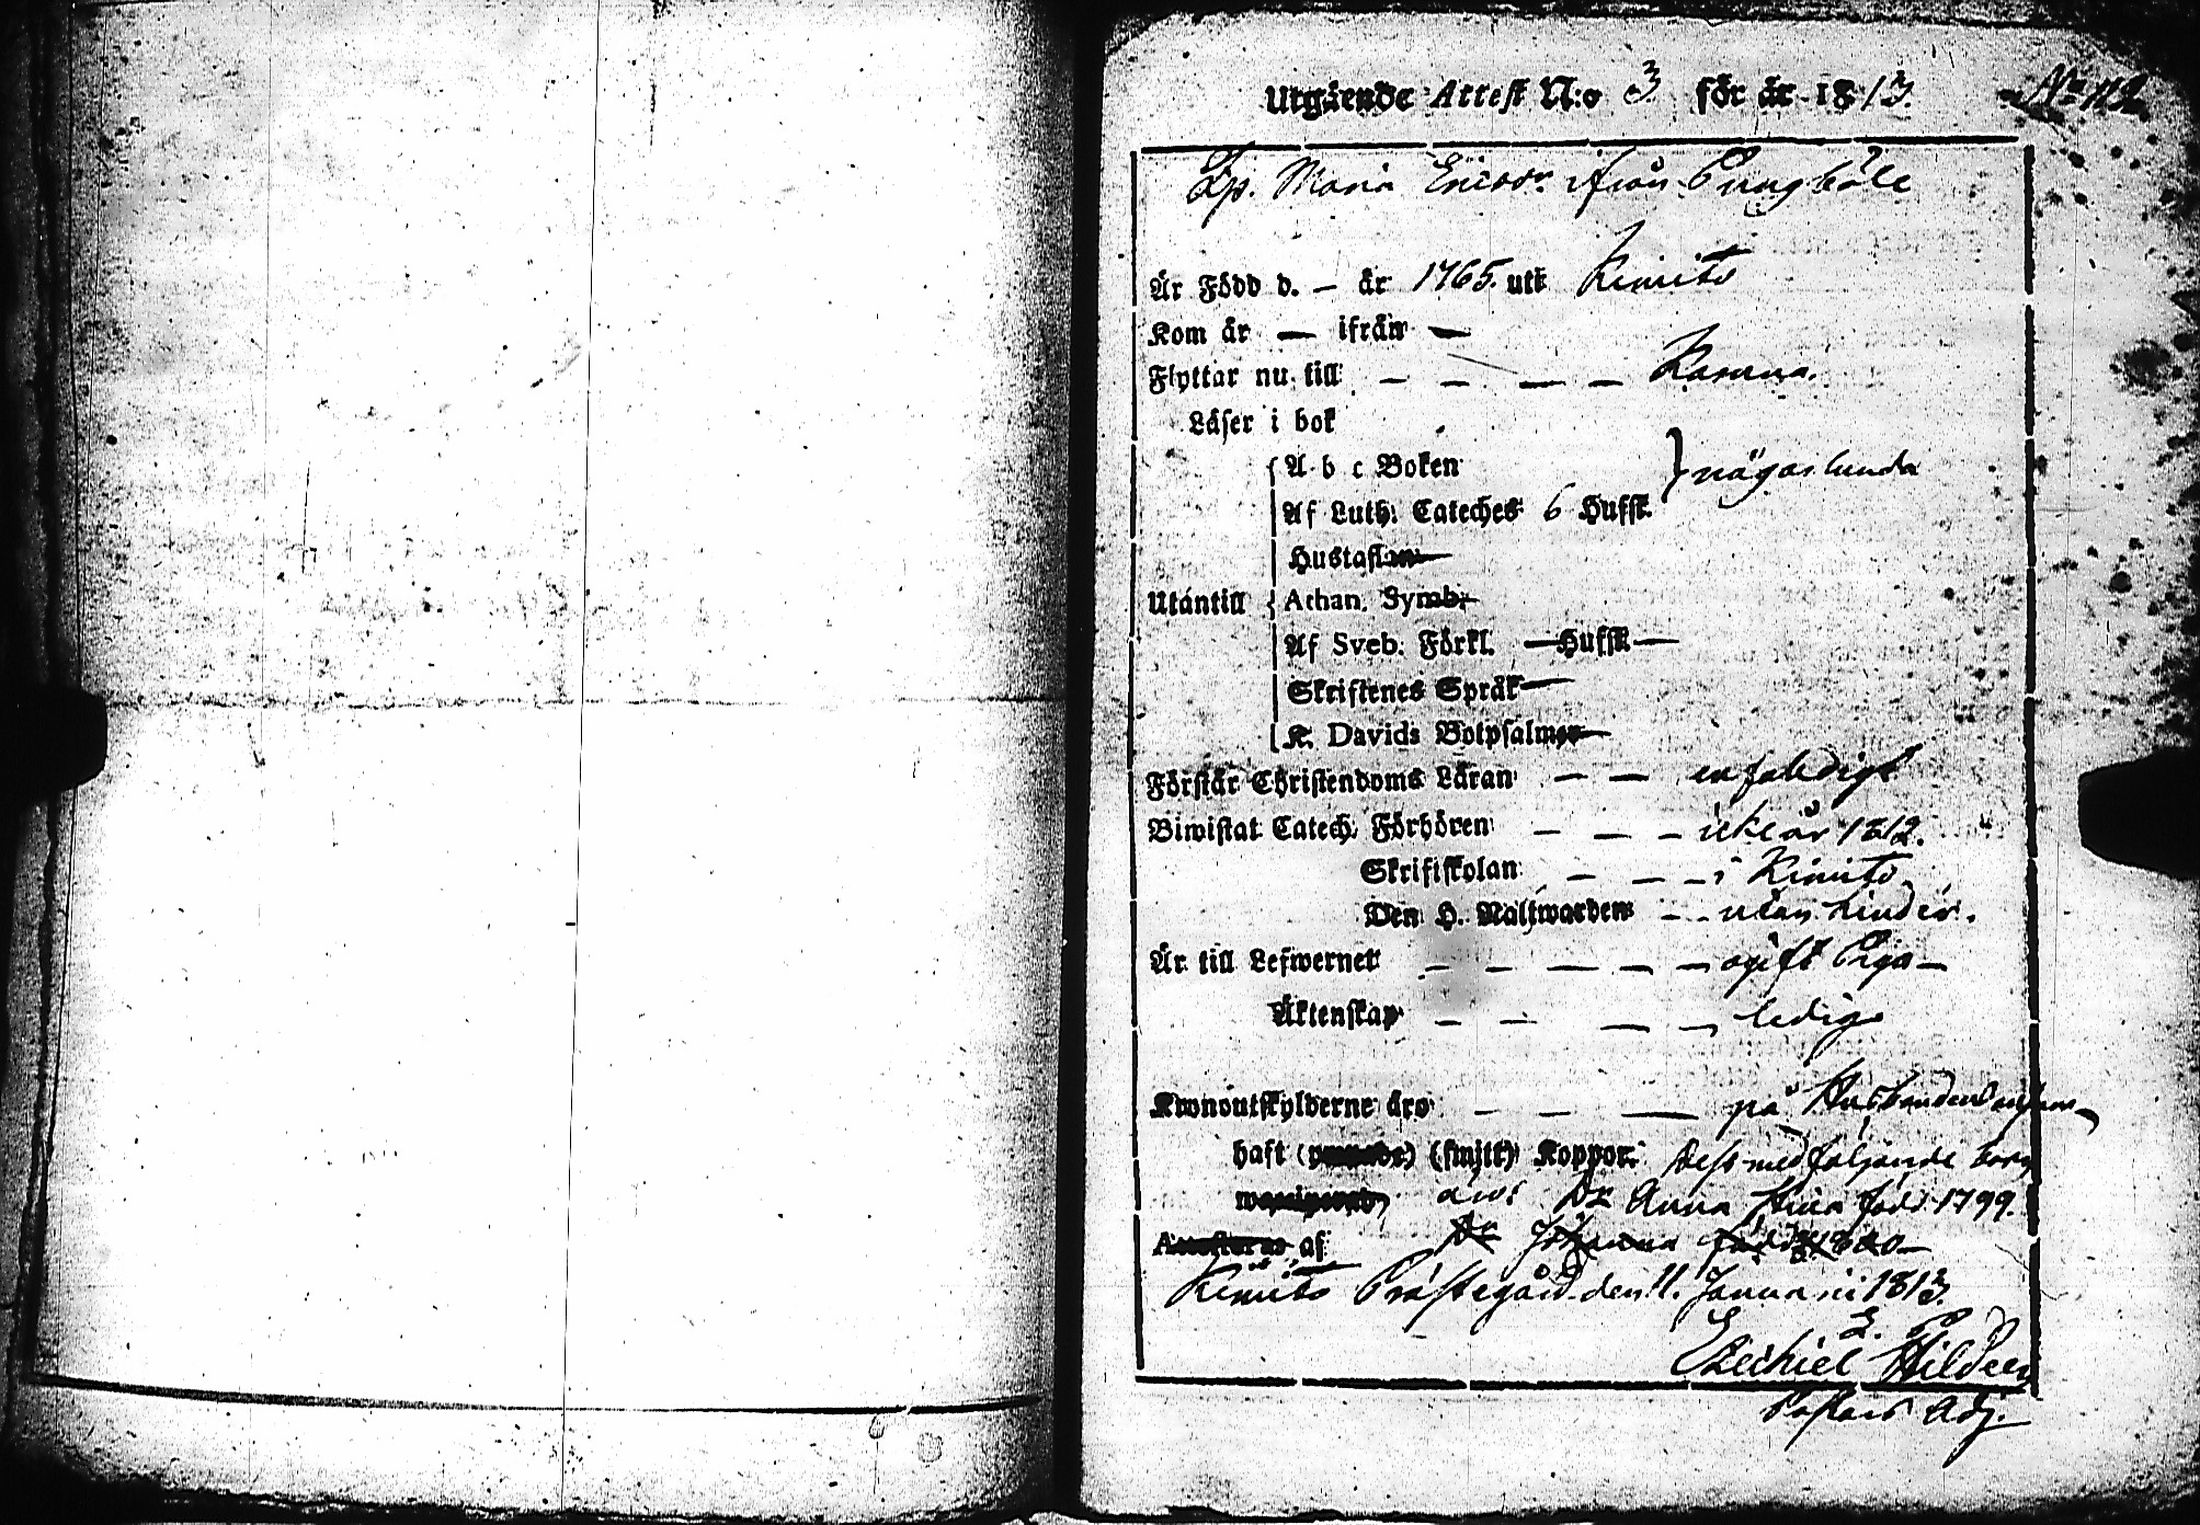 Utgående Attest N:o 3 för år 1813.
Maria Ericsdr. ifrån Pungböle
Är Född d. — år 1765. uti Kimito
Kom år — ifrån —
Flyttar nu till — — — —
Läser i bok
A b c Boken } någorlunda
Af Luth. Cateches 6 Hufst.
Hustaflan
Utantill Athan. Symb.
Af Sveb. Förkl. — Hufst. —
Skriftenes Språk
K. Davids Botpsalmer
Förstår Christendoms Läran — — enfaldigt
Biwistat Catech. Förhören — — — år 1812.
Skriftskolan — — — i Kimito
Den H. Nattwarden — — utan hinder.
Är till Lefwernet — — — — — ogift Piga —
Äktenskap — — — — ledig
Kronoutskylderne äro — — — på
haft (smitt) Koppor. med följande barn
Dr Anna Stina född 1799.
af Dr Johanna född 1800 —
Kimito Prästegård den 11. Januarii 1813.
Ezechiel Hildeen
Pastors Adj.